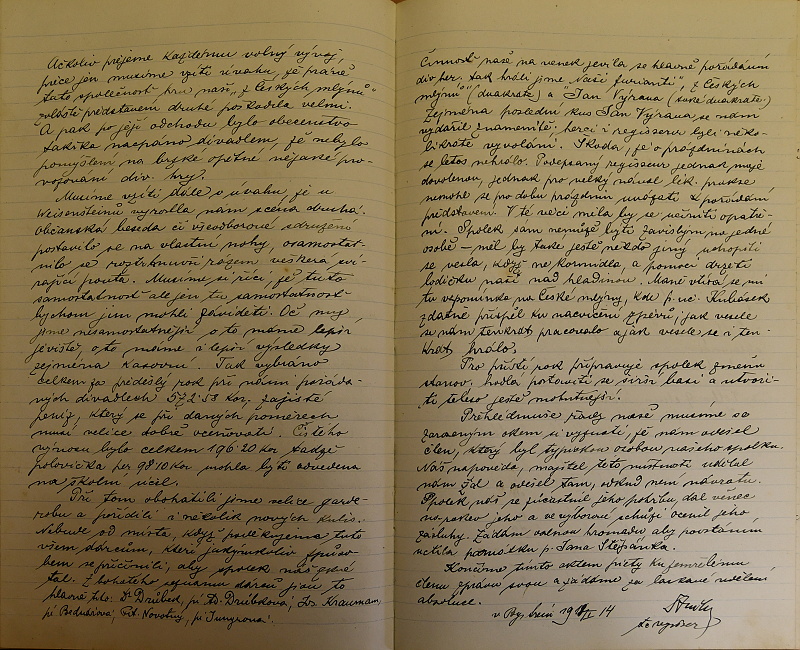 Ačkoliv přejeme každému volný vývoj,
přece jen musíme vzíti v úvahu, že právě
tato společnost hru naši „Z českých mlýnů“
zvláště představení druhé poškodila velmi.
A pak po její odchodu bylo obecenstvo
takřka nacpáno divadlem, že nebylo
pomyšlení na brzké opětné nějaké pro-
vozování div. hry.
Musíme vzíti dále v úvahu, že u
Weisensteinů vyrostla nám scéna druhá.
Občanská beseda či všeodborové sdružení
postavilo se na vlastní nohy, osamostat-
nilo se
samostatnost ale jen tu samostatnost
bychom jim mohli záviděti. Oč my
jsme nesamostatnější o to máme lepší
jeviště, o to máme i lepší výsledky
zejména kasovní. Tak vybráno
celkem za předešlý rok při námi pořáda-
ných divadlech 572.58 Kor. zajisté
peníz, který se při daných poměrech
musí velice dobře oceňovati. Čistého
výnosu bylo celkem 196.20 Kor tudíž
polovička per 98.10 Kor mohla býti odvedena
na školní účel.
Při tom obohatili jsme velice garde-
robu a pořídili i několik nových kulis.
Nebude od místa, když poděkujeme tuto
všem dárcům, kteří jakýmkoliv způso-
bem se přičinili, aby spolek náš
Z bohatého seznamu dárců jsou to
hlavně tito: Dr Drůbek, pí Ad. Drůbková, Fr. Kraumann,
pí Bednářová, Fr. Novotný, pí Jungrová.
Činnost naše na venek jevila se hlavně pořádáním
div. her. tak hráli jsme „Naši furianti“, „Z českých
mlýnů“ (dvakráte) a „Jan Výrava (také dvakráte.)
Zejména poslední kus Jan Výrava se nám
vydařil znamenitě: herci i regisseur byli něko-
likráte vyvoláni. Škoda, že o prázdninách
se letos nehrálo. Podepsaný regisseur jednak maje
dovolenou, jednak pro velký nával lék. prakse
nemohl se po dobu prázdnin uvázati k pořádání
představení. V té věci měla by se učiniti opatře-
ní. Spolek sám nemůže býti závislým na jedné
osobě – měl by také ještě někdo jiný uchopiti
se vesla, když ne kormidla, a pomoci držeti
lodičku naši nad hladinou. Maně vtírá se mi
tu vzpomínka na české mlýny, kde p. uč. Kubásek
zdatně přispěl ku nacvičení zpěvů; jak vesele
se nám tenkrát pracovalo a jak vesele se i ten-
krát hrálo.
Pro příští rok připravuje spolek změnu
stanov. hodlá postaviti se širší basi a utvoři-
ti těleso ještě mohutnější.
Přehlédnuvše řady naše musíme se
zaroseným okem i vyznati, že nám odešel
člen, který byl typickou osobou našeho spolku.
Náš nápověda, majitel této místnosti udělal
nám žal a odešel tam, odkud není návratu.
Spolek náš se zúčastnil jeho pohřbu, dal věnec
na rakev jeho a ve výborové schůzi ocenil jeho
zásluhy. Žádám valnou hromadu aby povstáním
uctila památku p. Jana Štěpánka.
Končíme tímto aktem piety ku zemřelému
členu zprávu svou a žádáme za laskavé udělení
absoluce.
14
t.č. regisseur